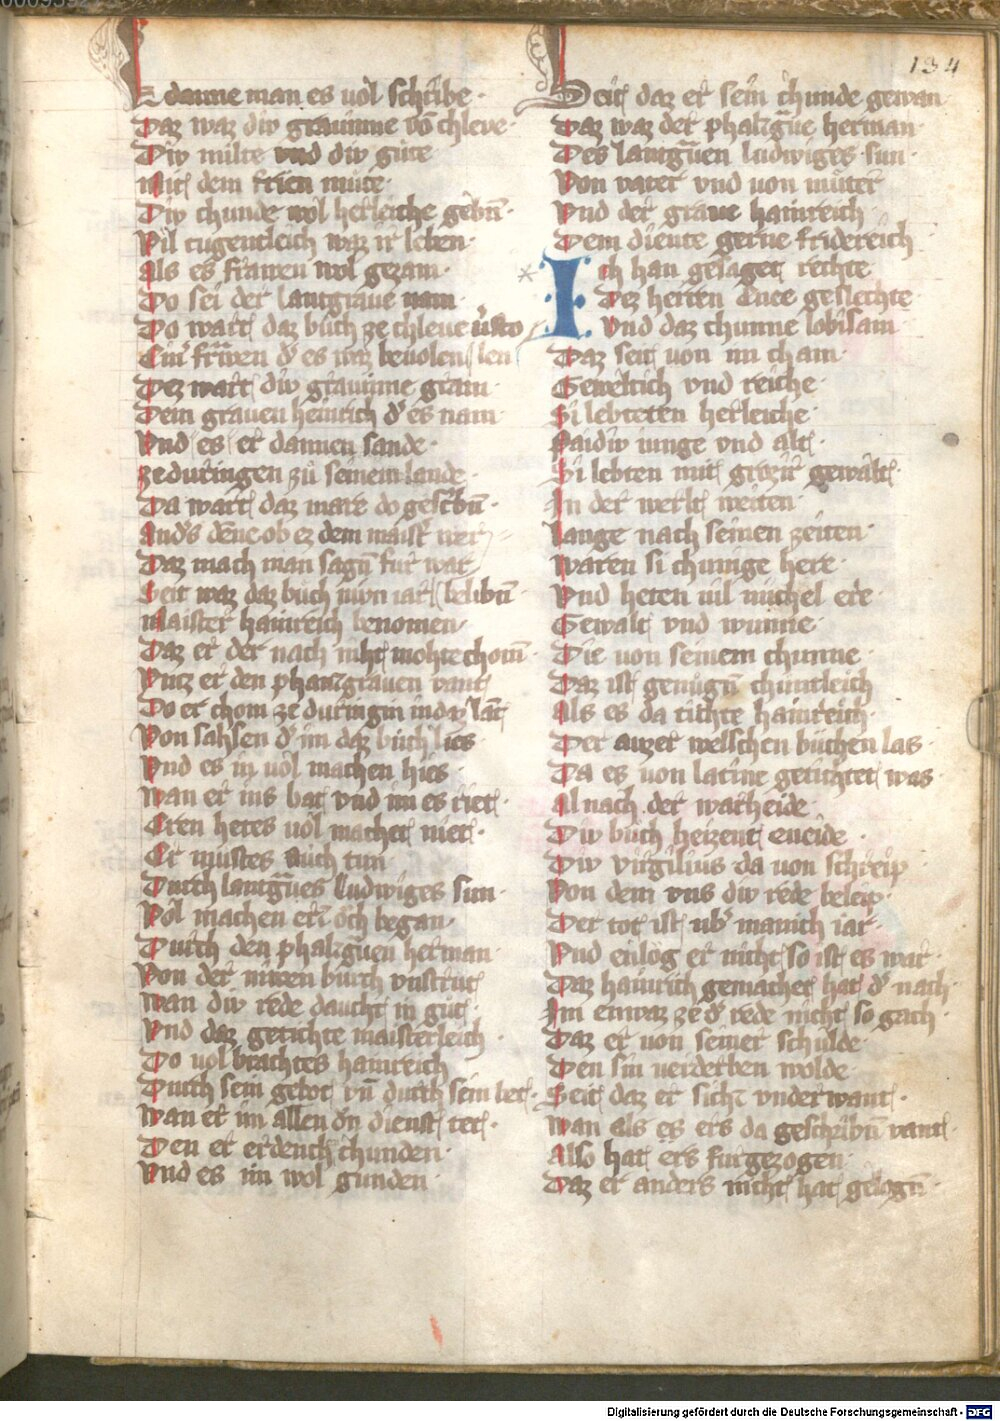 134
E danne man es uol schribe
Daz waz diw grauinne vō chleve
Diw milte vnd diw gůte
Mit dem frien můte
Diw chunde wol herleiche gebn̄
Vil tugentleich waz ir leben
Als es frawen wol gezam
Do sei der lantgraue nam
Do wart daz bůch ze chleue v̓sto
Ein̓ frawen d̓ es waz beuolen len
Dez wart diw grauinne gram
Dem grauen heinrich d̓ es nam
Vnd es er dannen sande
ze duringen zů seinem lande
Da wart daz mare do geschbn̄
And̓s denc ob ez dem maist̓ wer
Daz mach man sagn̄ fur war
Seit waz daz bůch niwn iar belibn̄
Maister hainreich benomen
Daz er der nach niht mohte chom̄
Vntz er den phantzgrauen vant
Do er chom ze duringin in daz lāt
Von sahsen d̓ im daz bůch lies
Vnd es in uol machen hies
Wan er ins bat vnd im es riet
Eren hetes uol machet niet
Er můstes auch tun
Durch lantgūes Ludwiges sun
Vol machen erz och began
Durch den phaltzgūen herman
Von der niwen burch vnstrut
Wan diw rede daucht in gůt
Vnd daz getichte maisterleich
Do uol brachtes hainreich
Durch sein gebot vn̄ durch sein bet
Wan er im allen dn̄ dienst tet
Den er erdencht chunden
Vnd es im wol gunden
Seit daz er sein chunde gewan
Daz waz der phaltzgūe herman
Des lantgūen ludwiges sun
Von vater vnd von můter
Vnd der graue hainreich
Dem diente gerne fridereich
Ich han gesaget rechte
Dez herren Enee geslechte
Vnd daz chunne lobisam
Daz seit von im cham
Geweltich vnd reiche
Si lebteten herleiche
Paidiw iunge vnd alt
Si lebten mit grozir gewalt
In der werlt weiten
Lange nach seinen zeiten
Waren si chunige here
Vnd heten uil michel ere
Gewalt vnd wunne
Die von seinem chunne
Daz ist genůgn̄ chuntleich
Als es da tichte hainreich
Der auzer welschen bůchen las
Da es von latine getichtet was
Al nach der warheide
Diw bůch heizent eneide
Diw virgilius da von schreip
Von dem vns diw rede beleip
Der tot ist ub̓ manich iar
Vnd enlög er nicht so ist es war
Daz hainrich gemachet hat d̓ nach
Im enwaz ze d̓ rede nicht so gach
Daz er von seiner schulde
Den sin verderben wolde
Seit daz er sich vnder want
Wan als es ers da geschribn̄ vant
Also hat ers furgezogen
Daz er anders nicht hat gelogn̄
Digitalisierung gefördert durch die Deutsche Forschungsgemeinschaft - DFG